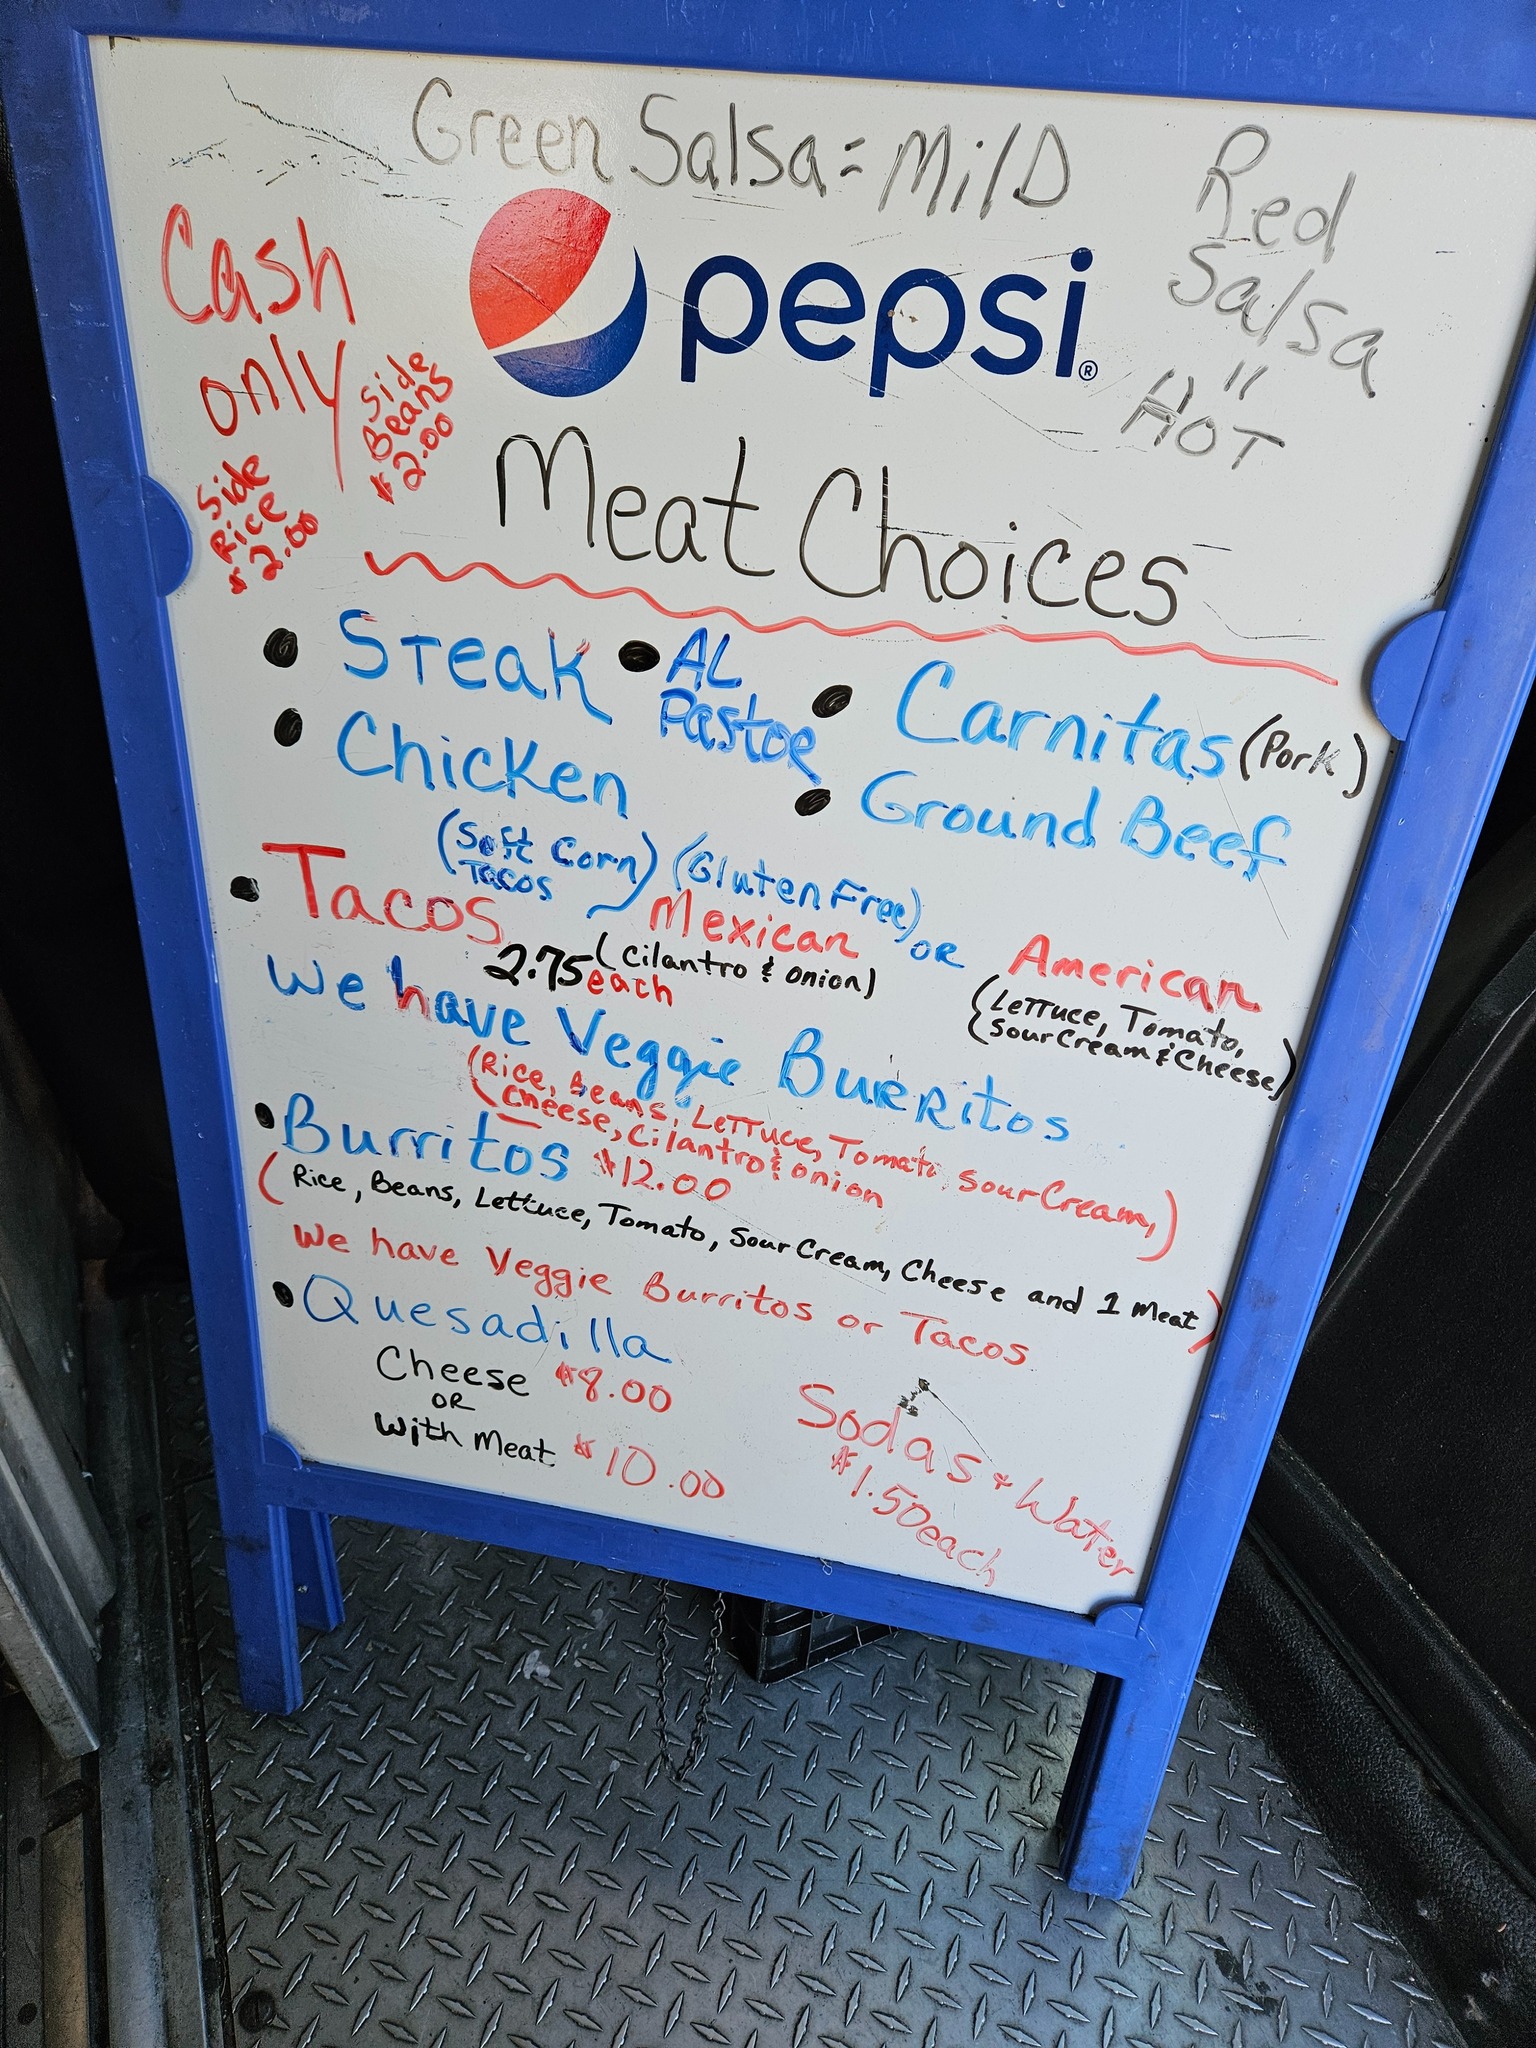 Green Salsa = MilD
Red
Salsa
=
HOT
Cash
only
Side
Beans
$2.00
Side
Rice
$2.00
pepsi®
Meat Choices
• Steak
• AL
Pastor
• Carnitas (Pork)
• Chicken
• Ground Beef
(Soft Corn) (Gluten Free)
Tacos
• Tacos Mexican OR American
2.75 each (Cilantro & onion)
(Lettuce, Tomato,
Sour Cream & Cheese)
We have Veggie Burritos
(Rice, Beans, Lettuce, Tomato, Sour Cream,
Cheese, Cilantro & onion)
• Burritos $12.00
(Rice, Beans, Lettuce, Tomato, Sour Cream, Cheese and 1 Meat)
We have Veggie Burritos or Tacos
• Quesadilla
Cheese $8.00
OR
With Meat $10.00
Sodas + Water
$1.50 each